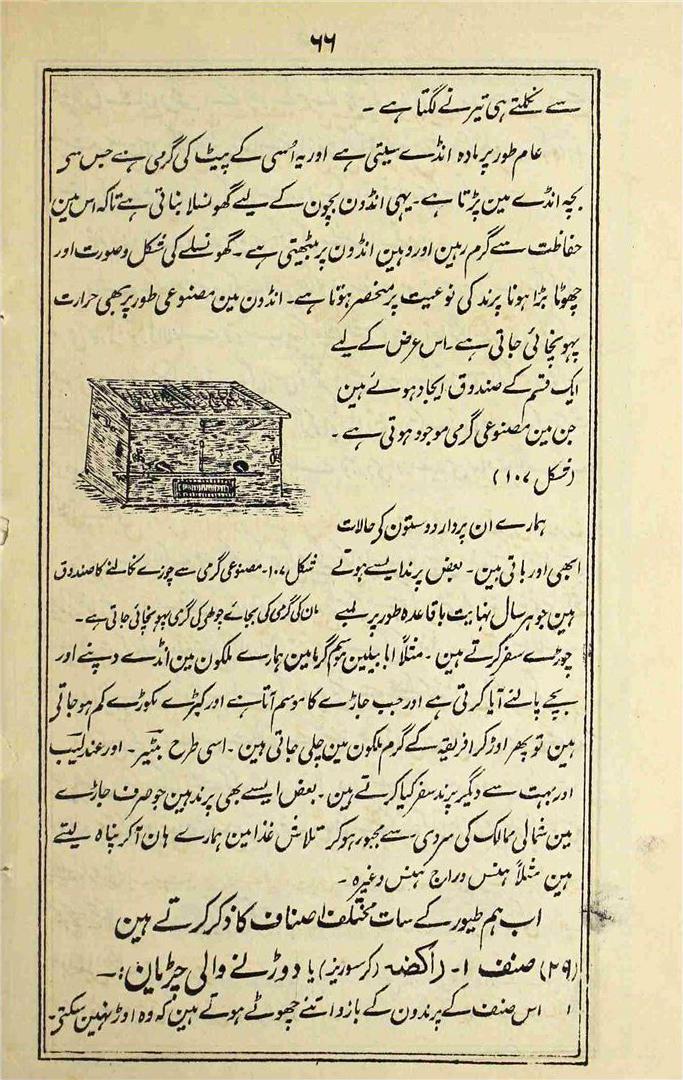 ۶۶
سے نکلتے ہی تیرنے لگتا ہے ۔
عام طور پر مادہ انڈے سیتی ہے اور یہ اُسی کے پیٹ کی گرمی ہے جس سے
بچہ انڈے مین پڑتا ہے ۔ یہی انڈون بچون کے لیے گھونسلا بناتی ہے تاکہ اس مین
حفاظت سے گرم رہین اور وہین انڈون پر بیٹھتی ہے ۔ گھونسلے کی شکل و صورت اور
چھوٹا بڑا ہونا پرند کی نوعیت پر منحصر ہوتا ہے ۔ انڈون مین مصنوعی طور پر بھی حرارت
پہونچائی جاتی ہے ۔ اس غرض کے لیے
ایک قسم کے صندوق ایجاد ہوئے ہین
جن مین مصنوعی گرمی موجود ہوتی ہے ۔
(شکل ۱۰۷)
ہمارے ان پردار دوستون کی حالات
ابھی اور باقی ہین ۔ بعض پرند ایسے ہوتے
ہین جو ہر سال نہایت باقاعدہ طور پر لمبے
شکل ۱۰۷ ۔ مصنوعی گرمی سے چوزے نکالنے کا صندوق
مان کی گرمی کی بجائے چولھے کی گرمی پہونچائی جاتی ہے ۔
چوڑے سفر کرتے ہین ۔ مثلاً ابابیلین موسم گرما مین ہمارے ملکون مین انڈے دینے اور
بچے پالنے آیا کرتی ہے اور جب جاڑے کا موسم آتا ہے اور کیڑے مکوڑے کم ہو جاتی
ہین تو پھر اوڑ کر افریقہ کے گرم ملکون مین چلی جاتی ہین ۔ اسی طرح بٹیر ۔ اور عندلیب
اور بہت سے دیگر پرند سفر کیا کرتے ہین ۔ بعض ایسے بھی پرند ہین جو صرف جاڑے
مین شمالی ممالک کی سردی سے مجبور ہو کر تلاش غذا مین ہمارے ہان آ کر پناہ لیتے
ہین مثلاً ہنس و راج ہنس وغیرہ ۔
اب ہم طیور کے سات مختلف اصناف کا ذکر کرتے ہین
(۲۹) صنف ۱ ۔ راکضہ (کرسوریز) یا دوڑنے والی چڑیان :۔
۱ اس صنف کے پرندون کے بازو اتنے چھوٹے ہوتے ہین کہ وہ اوڑ نہین سکتی ۔